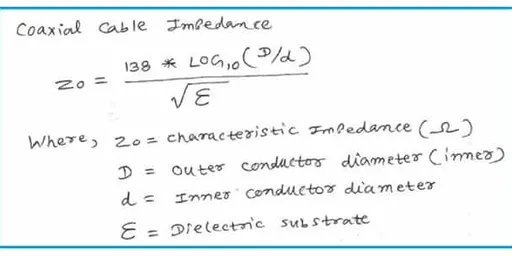 Coaxial Cable Impedance
Zo = 138 * LOG10 (D/d) / √ε
Where, Zo = characteristic Impedance (Ω)
D = Outer conductor diameter (inner)
d = Inner conductor diameter
ε = Dielectric substrate